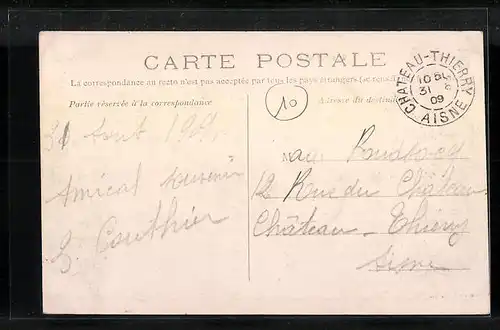 CARTE POSTALE
La correspondance au recto n'est pas acceptée par tous les pays étrangers
Partie réservée à la correspondance
Adresse du destina
CHATEAU-THIERRY
31 8
09
AISNE
10
31 Août 1909
Amical souvenir
Gouthier
12 Rue du Château
Château-Thierry
Aisne